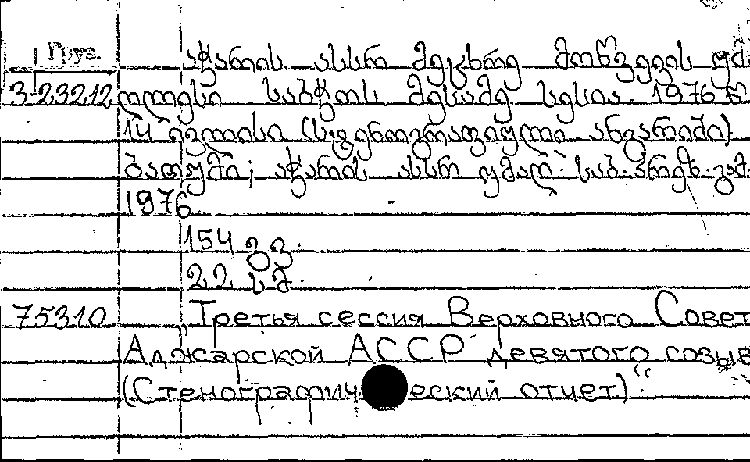 Груз.
აჭარის ასსრ მეცხრე მოწვევის უმ
3-23212 ღლესი საბჭოს მესამე სესია. 1976 წ.
14 ივლისი (სტენოგრაფიული ანგარიში)
ბათუმი; აჭარის ასსრ უმაღ. საბ. პრეზ. გამ.
1976
154 გვ.
22 სმ.
75310 „Третья сессия Верховного Совет
Аджарской АССР девятого созыв
(Стенографический отчет)“